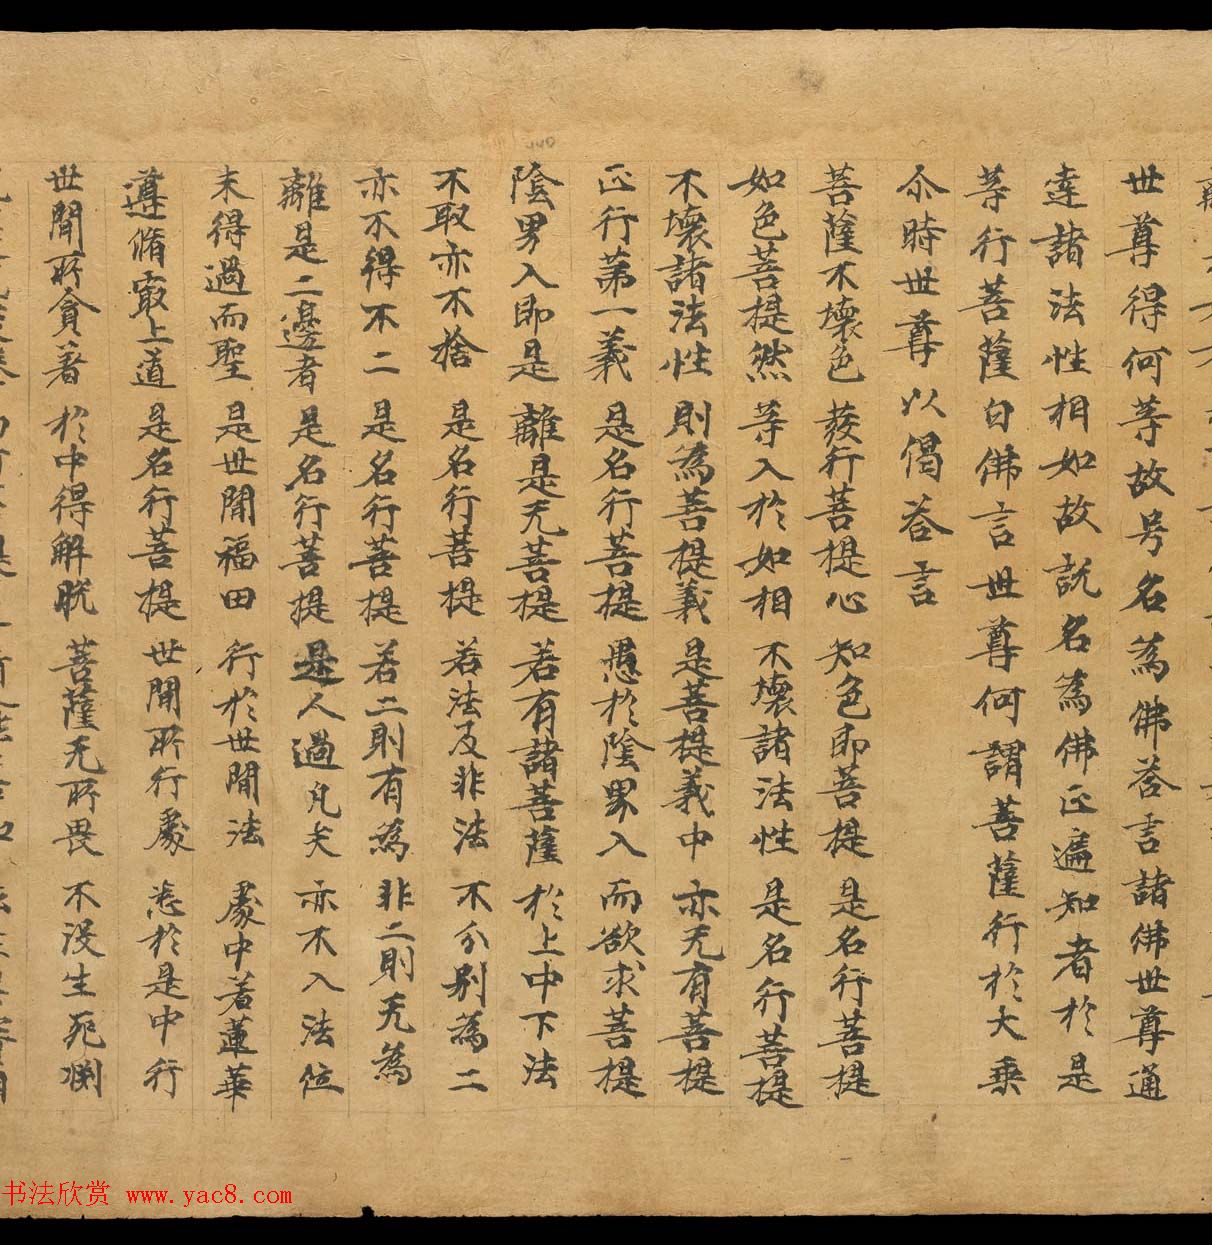 世尊得何等故号名為佛荅言諸佛世尊通
達諸法性相如故說名為佛正遍知者於是
等行菩薩白佛言世尊何謂菩薩行於大乗
尒時世尊以偈荅言
菩薩不壞色 發行菩提心 知色即菩提 是名行菩提
如色菩提然 等入於如相 不壞諸法性 是名行菩提
不壞諸法性 則為菩提義 是菩提義中 亦无有菩提
正行第一義 是名行菩提 愚於陰界入 而欲求菩提
陰界入即是 離是无菩提 若有諸菩薩 於上中下法
不取亦不捨 是名行菩提 若法及非法 不分别為二
亦不得不二 是名行菩提 若二則有為 非二則无為
離是二邊者 是名行菩提 是人過凡夫 亦不入法位
未得過而聖 是世間福田 行於世間法 處中著蓮華
遵脩冣上道 是名行菩提 世間所行處 悉於是中行
世間所貪著 於中得解脫 菩薩无所畏 不没生死渕
书法欣赏 www.yac8.com